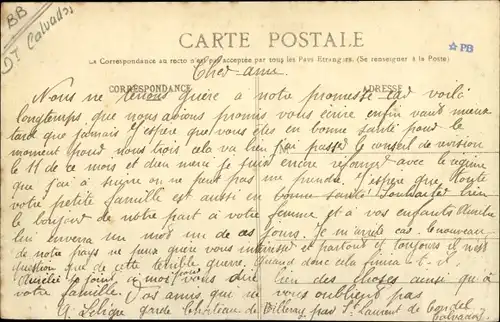 BB
DJ Calvados
CARTE POSTALE
PB
La Correspondance au recto n'est pas acceptée par tous les Pays Etrangers. (Se renseigner à la Poste)
Cher ami
CORRESPONDANCE
ADRESSE
Nous ne tenons guère a notre promesse car voilà
longtemps que nous avions promis vous écrire enfin vaut mieux
tard que jamais J'espère que vous êtes en bonne santé pour le
moment pour nous trois cela va bien j'ai passé le conseil de revision
le 11 de ce mois et dieu merci je suis encore réformé avec le régime
que j'ai à suivre on ne peut pas me prendre. J'espère que toute
votre petite famille est aussi en bonne santé Souhaitez bien
le bonjour de notre part à votre femme et à vos enfants Amélie
lui enverra un mot un de ces jours. Je m'arrete car le nouveau
de notre pays ne vous intéresse et partout et toujours il n'est
question que de cette terrible guerre. Quand donc cela finira t-il
Amélie se joint à moi pour vous dire bien des choses ainsi qu'à
votre famille. Vos amis qui ne vous oublient pas
garde Château de par St Laurent de Condel
Calvados